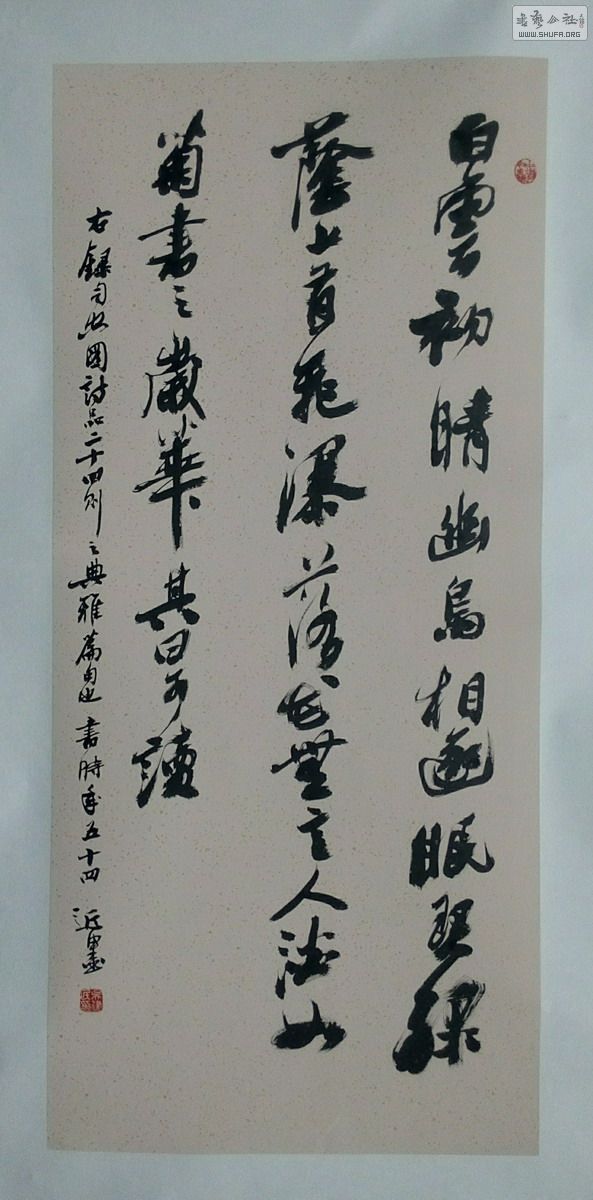 書藝公社
WWW.SHUFA.ORG
白雲初晴幽鳥相逐眠琴綠
蔭上有飛瀑落花無言人淡如
菊書之歲華其曰可讀
右錄司空圖詩品二十四則之典雅篇句也 書時年五十四